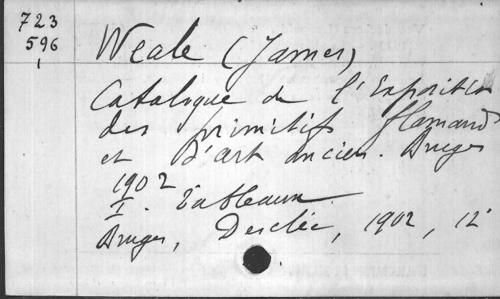 723
596
1
Weale (James)
Catalogue de l'Exposition
des primitifs flamands
et d'art ancien. Bruges
1902
I. Tableaux.
Bruges, Desclée, 1902, 12°